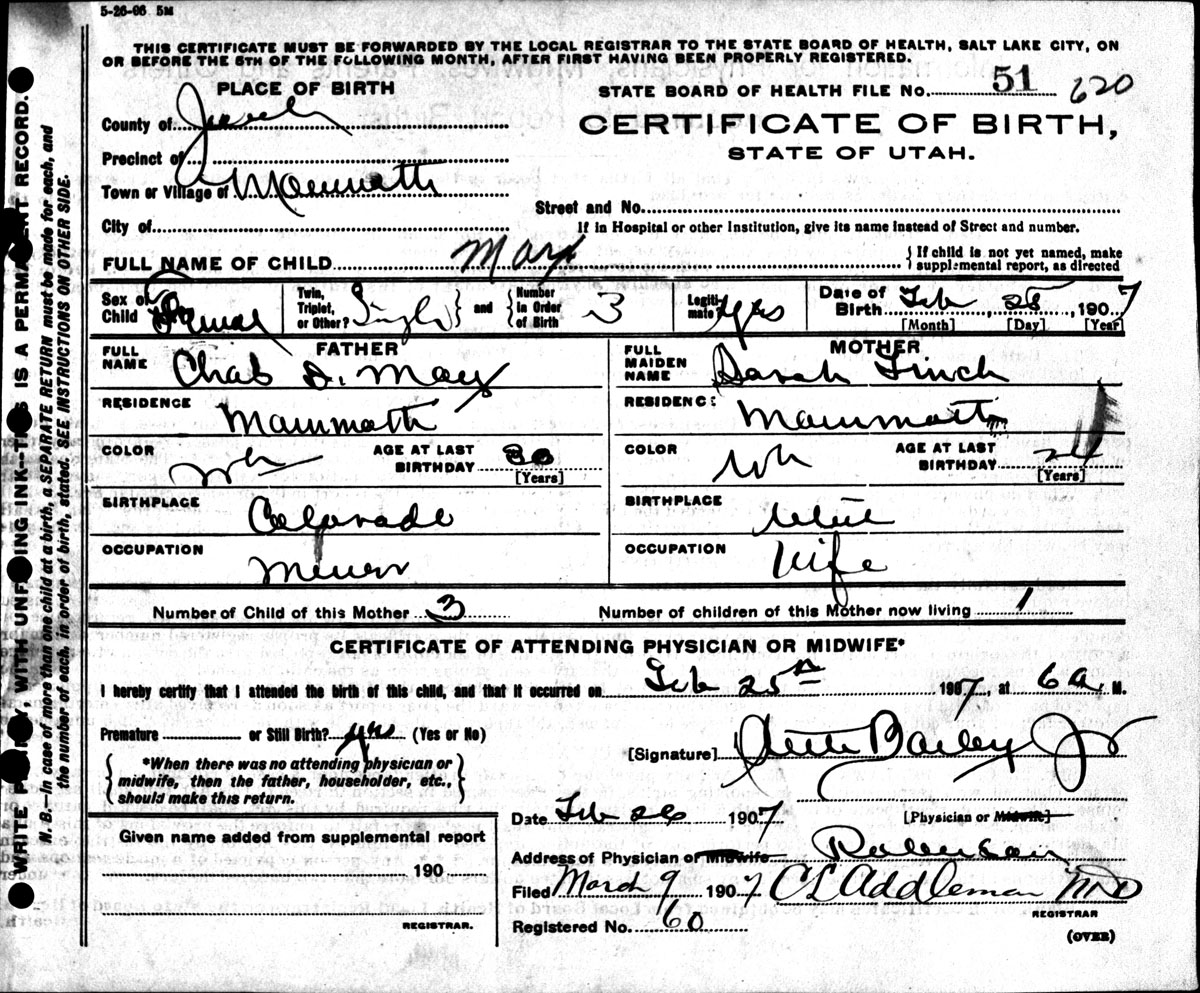 5-26-06 5M
THIS CERTIFICATE MUST BE FORWARDED BY THE LOCAL REGISTRAR TO THE STATE BOARD OF HEALTH, SALT LAKE CITY, ON
OR BEFORE THE 5TH OF THE FOLLOWING MONTH, AFTER FIRST HAVING BEEN PROPERLY REGISTERED.
PLACE OF BIRTH
STATE BOARD OF HEALTH FILE No. 51 620
County of Juab
CERTIFICATE OF BIRTH,
Precinct of
STATE OF UTAH.
Town or Village of Mammoth
Street and No.
City of
If in Hospital or other Institution, give its name instead of Street and number.
FULL NAME OF CHILD May
{ If child is not yet named, make supplemental report, as directed
Sex of Child Female
Twin, Triplet, or Other? Single } and { Number in Order of Birth 3
Legiti-mate? Yes
Date of Birth Feb, 25, 1907
[Month] [Day] [Year]
FATHER
FULL NAME Chas D. May
MOTHER
FULL MAIDEN NAME Sarah Finch
RESIDENCE Mammoth
RESIDENCE Mammoth
COLOR Wh
AGE AT LAST BIRTHDAY 30
[Years]
COLOR Wh
AGE AT LAST BIRTHDAY
[Years]
BIRTHPLACE Colorado
BIRTHPLACE Utah
OCCUPATION Miner
OCCUPATION Wife
Number of Child of this Mother 3
Number of children of this Mother now living 1
CERTIFICATE OF ATTENDING PHYSICIAN OR MIDWIFE*
I hereby certify that I attended the birth of this child, and that it occurred on Feb 25th 1907, at 6 a. M.
Premature or Still Birth? yes (Yes or No)
[Signature] Bailey Jr
{ *When there was no attending physician or midwife, then the father, householder, etc., should make this return. }
[Physician or Midwife]
Date Feb 26 1907
Given name added from supplemental report
190
REGISTRAR.
Address of Physician or Midwife Robinson
Filed March 9 1907 C L Addleman MD
REGISTRAR
Registered No. 60
(OVER)
WRITE PLAINLY, WITH UNFADING INK—THIS IS A PERMANENT RECORD.
N. B.—In case of more than one child at a birth, a SEPARATE RETURN must be made for each, and
the number of each, in order of birth, stated. SEE INSTRUCTIONS ON OTHER SIDE.